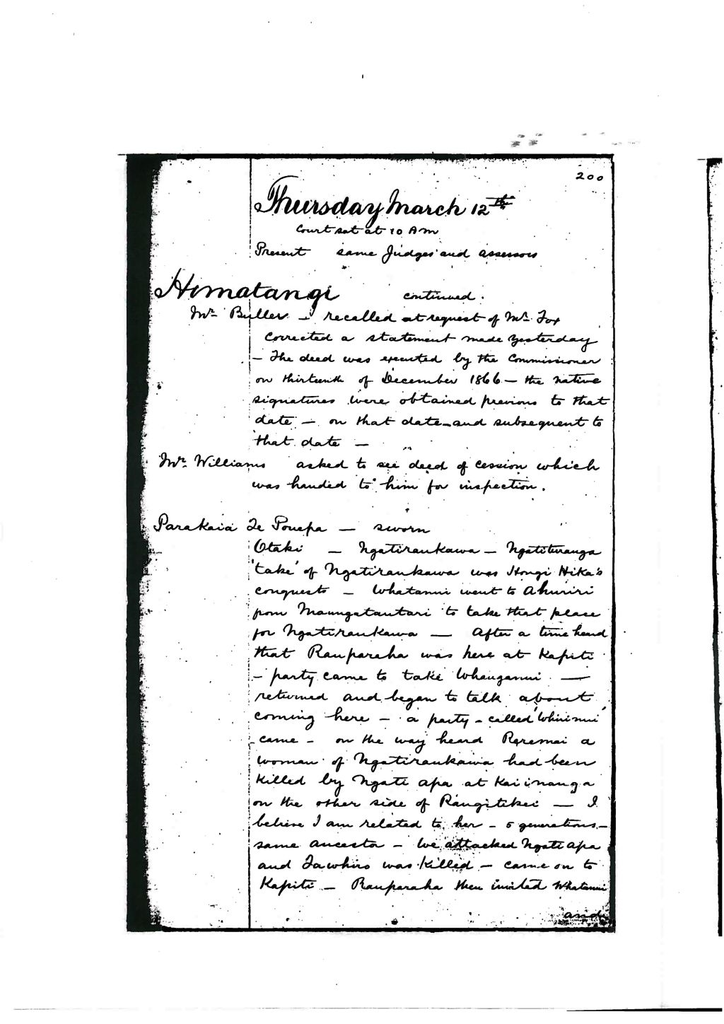 200
Thursday March 12th
Court sat at 10 AM
Present same Judges and assessors
Himatangi continued.
Mr. Buller – recalled at request of Mr. Fox
corrected a statement made yesterday
– The deed was executed by the Commissioner
on thirteenth of December 1866 – the native
signatures were obtained previous to that
date – on that date and subsequent to
that date –
Mr. Williams asked to see deed of cession which
was handed to him for inspection.
Parakaia Te Pouepa – sworn
Otaki – Ngatiraukawa – Ngatituranga
'take' of Ngatiraukawa was Hongi Hika's
conquests – Whatanui went to Ahuriri
from Maungatautari to take that place
for Ngatiraukawa – After a time heard
that Rauparaha was here at Kapiti
– party came to take Whanganui –
returned and began to talk about
coming here – a party – called 'Whirinui'
came – on the way heard a
woman of Ngatiraukawa had been
killed by Ngati apa at Kaiinanga
on the other side of Rangitikei – I
believe I am related to her – 5 generations –
same ancestor – We attacked Ngati apa
and was killed – came on to
Kapiti – Rauparaha then invited Whatanui
and